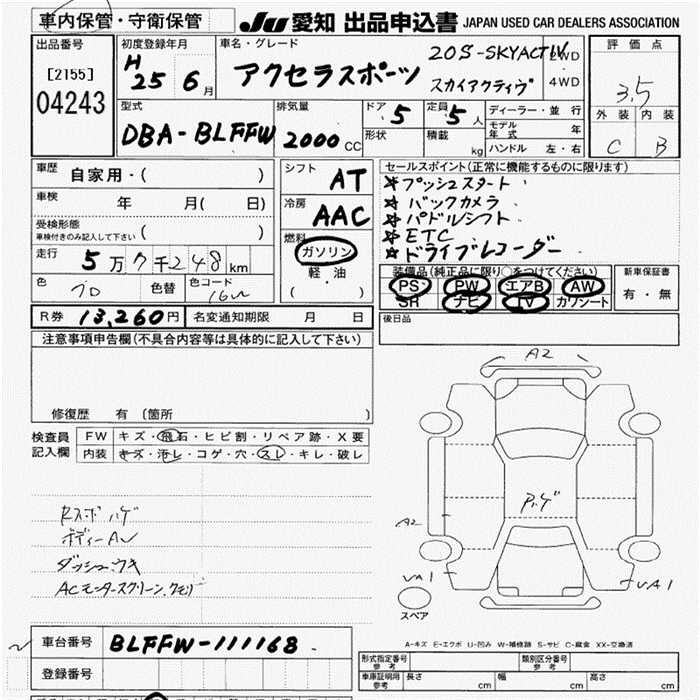 車内保管・守衛保管
JU 愛知 出品申込書 JAPAN USED CAR DEALERS ASSOCIATION
出品番号
[2155]
04243
初度登録年月
H 25 6月
車名・グレード
アクセラスポーツ
20S-SKYACTIV
スカイアクティヴ
2WD
4WD
評価点
3.5
外装 内装
C B
型式
DBA-BLFFW
排気量
2000cc
ドア 5
定員 5人
形状
積載 kg
ディーラー・並行
モデル年式 年
ハンドル 左・右
車歴 自家用・( )
車検 年 月( 日)
受検形態
車検付きのみ記入して下さい ( )
走行 5万7千248km
色 色替 色コード
シフト AT
冷房 AAC
燃料
ガソリン
軽・油
( )
セールスポイント(正常に機能するものに限ります)
☆プッシュスタート
☆バックカメラ
☆パドルシフト
☆ETC
☆ドライブレコーダー
装備品(純正品に限り○をつけてください)
PS PW エアB AW
SR ナビ TV カワシート
新車保証書
有・無
R券 13,260円 名変通知期限 月 日
後日品
注意事項申告欄(不具合内容等は具体的に記入して下さい)
修復歴 有 (箇所 )
検査員記入欄
FW キズ・飛石・ヒビ割・リペア跡・X要
内装 キズ・汚レ・コゲ・穴・スレ・キレ・破レ
ボディーAV
ダッシュウキ
A2
A2
VA1
VA1
スペア
A-キズ E-エクボ U-凹み W-補修跡 S-サビ C-腐食 XX-交換済
車台番号 BLFFW-111168
登録番号
形式指定番号 参考
類別区分番号 参考
車庫証明用 参考 長さ cm 幅 cm 高さ cm